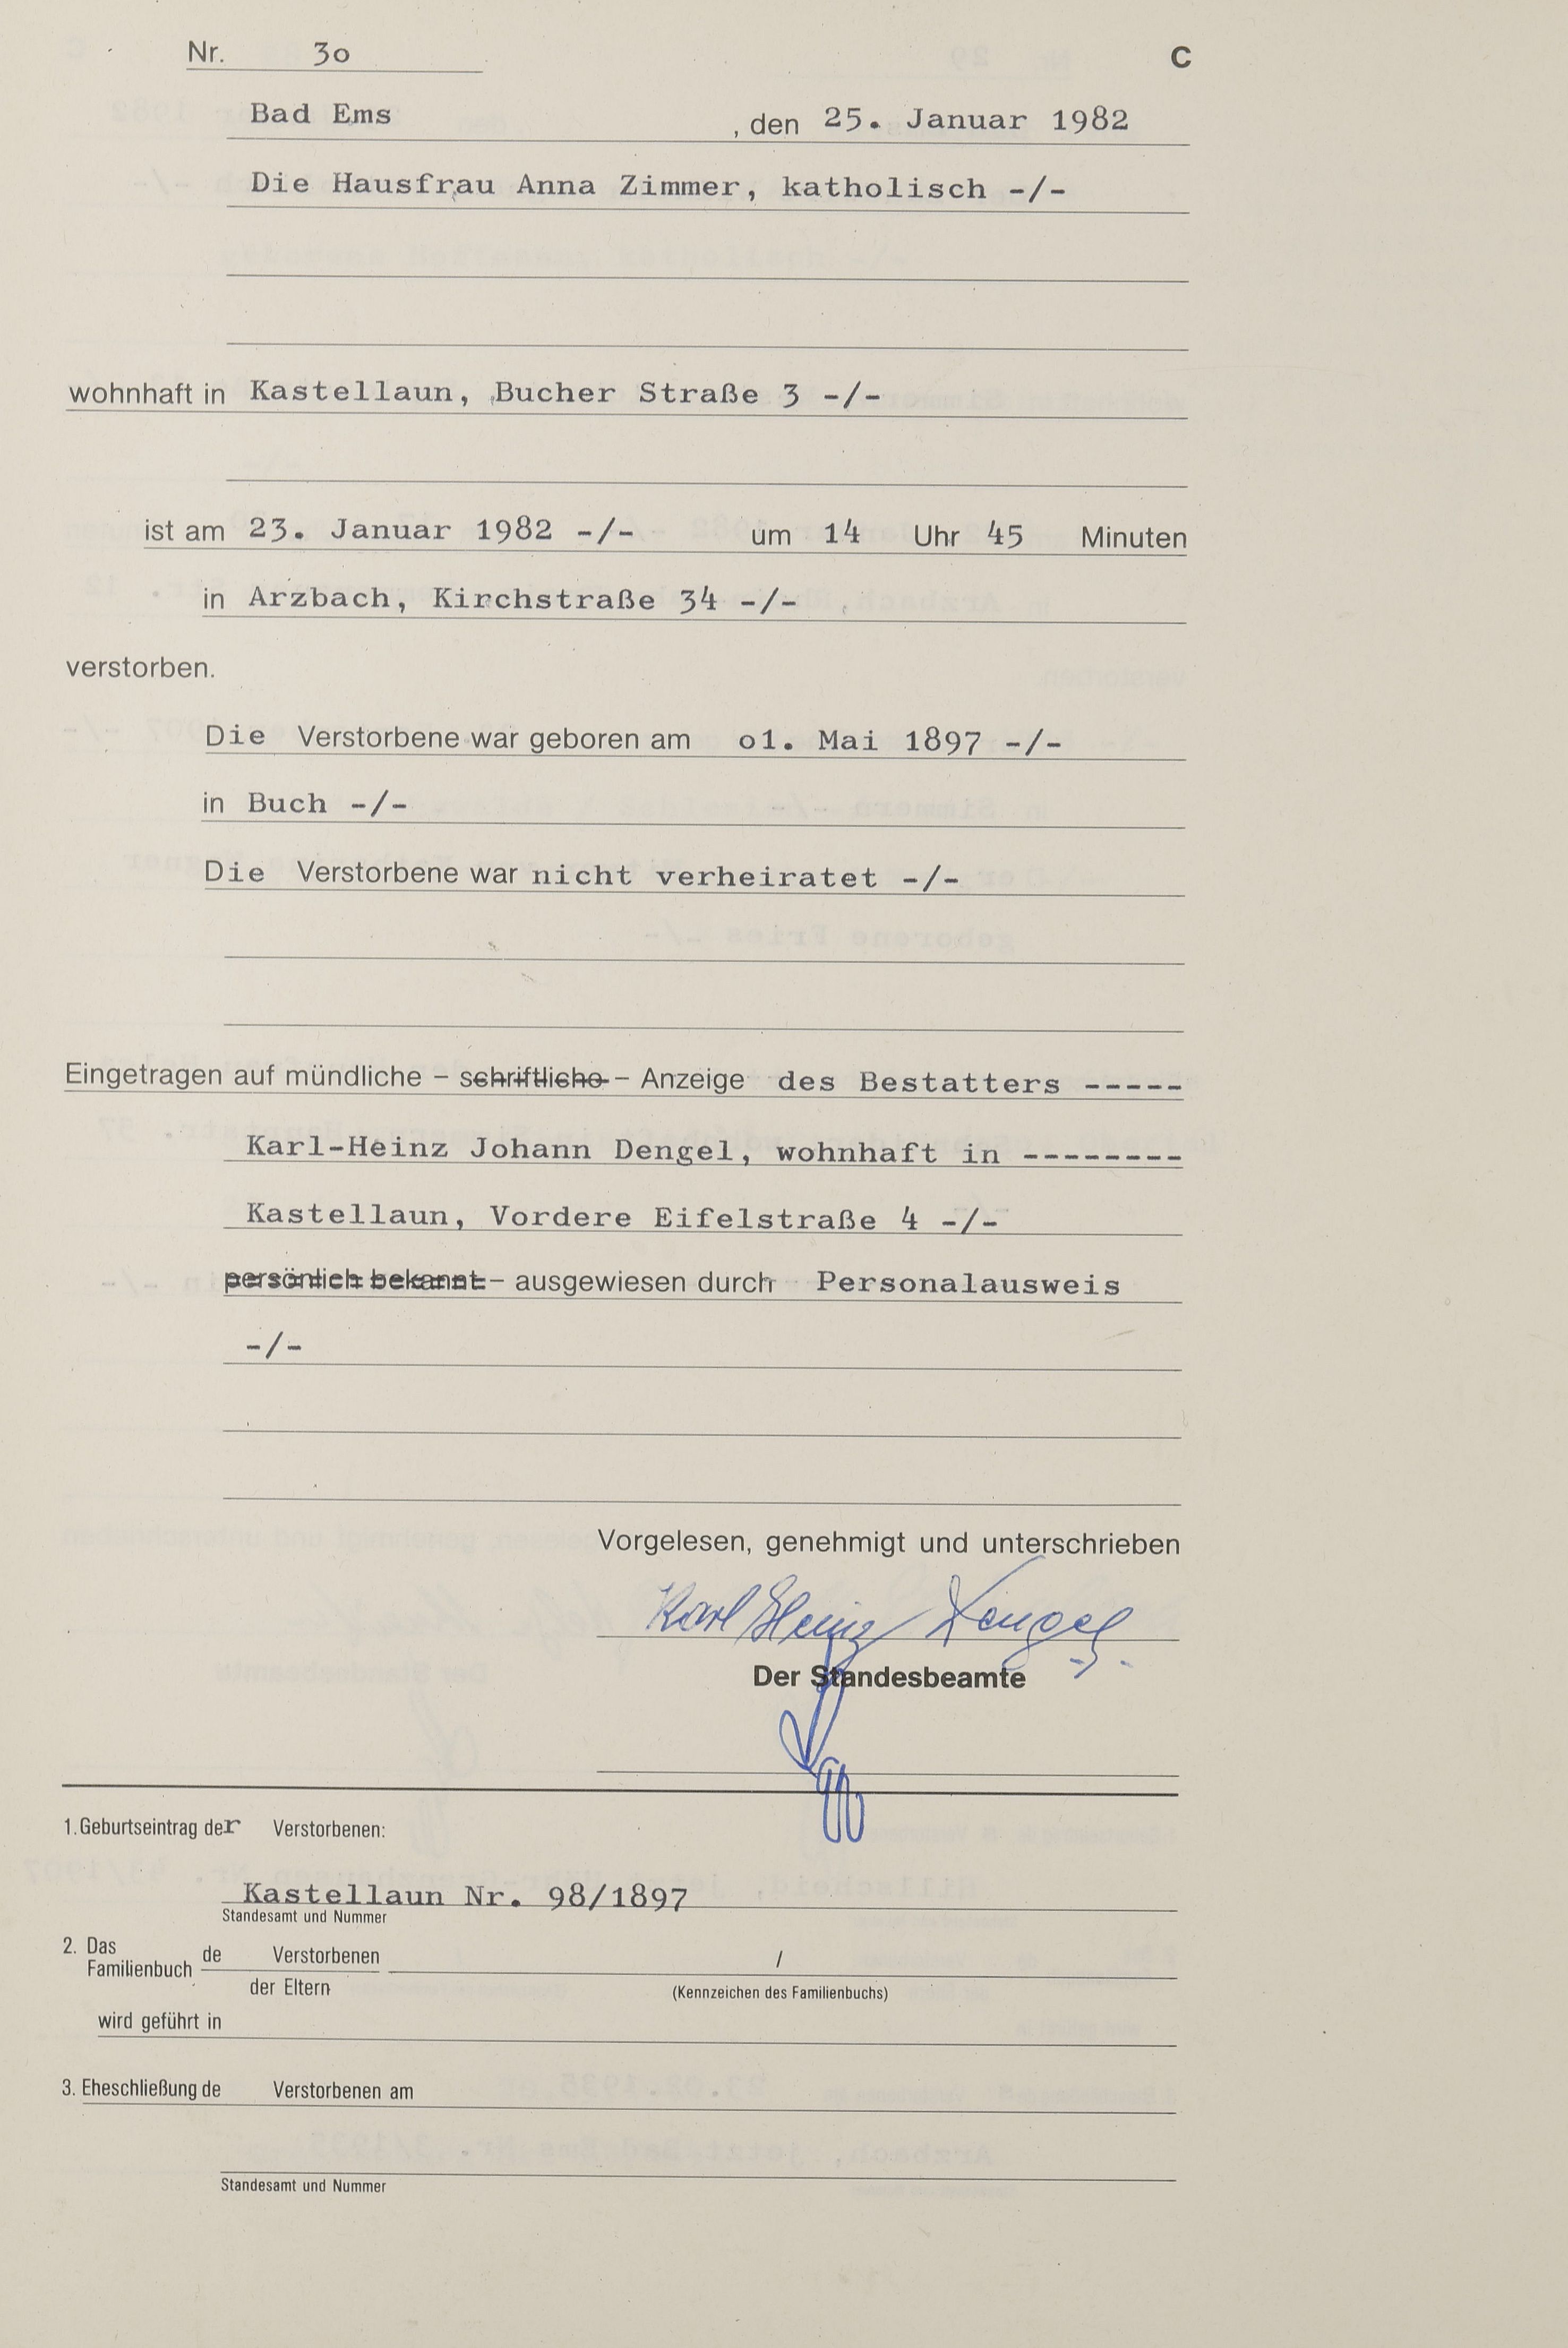 Nr. 3o C
Bad Ems , den 25. Januar 1982
Die Hausfrau Anna Zimmer, katholisch -/-
wohnhaft in Kastellaun, Bucher Straße 3 -/-
ist am 23. Januar 1982 -/- um 14 Uhr 45 Minuten
in Arzbach, Kirchstraße 34 -/-
verstorben.
Die Verstorbene war geboren am o1. Mai 1897 -/-
in Buch -/-
Die Verstorbene war nicht verheiratet -/-
Eingetragen auf mündliche – schriftliche – Anzeige des Bestatters -----
Karl-Heinz Johann Dengel, wohnhaft in --------
Kastellaun, Vordere Eifelstraße 4 -/-
persönlich bekannt – ausgewiesen durch Personalausweis
-/-
Vorgelesen, genehmigt und unterschrieben
Karl Heinz Dengel
Der Standesbeamte
1. Geburtseintrag der Verstorbenen:
Kastellaun Nr. 98/1897
Standesamt und Nummer
2. Das Familienbuch de Verstorbenen /
der Eltern (Kennzeichen des Familienbuchs)
wird geführt in
3. Eheschließung de Verstorbenen am
Standesamt und Nummer